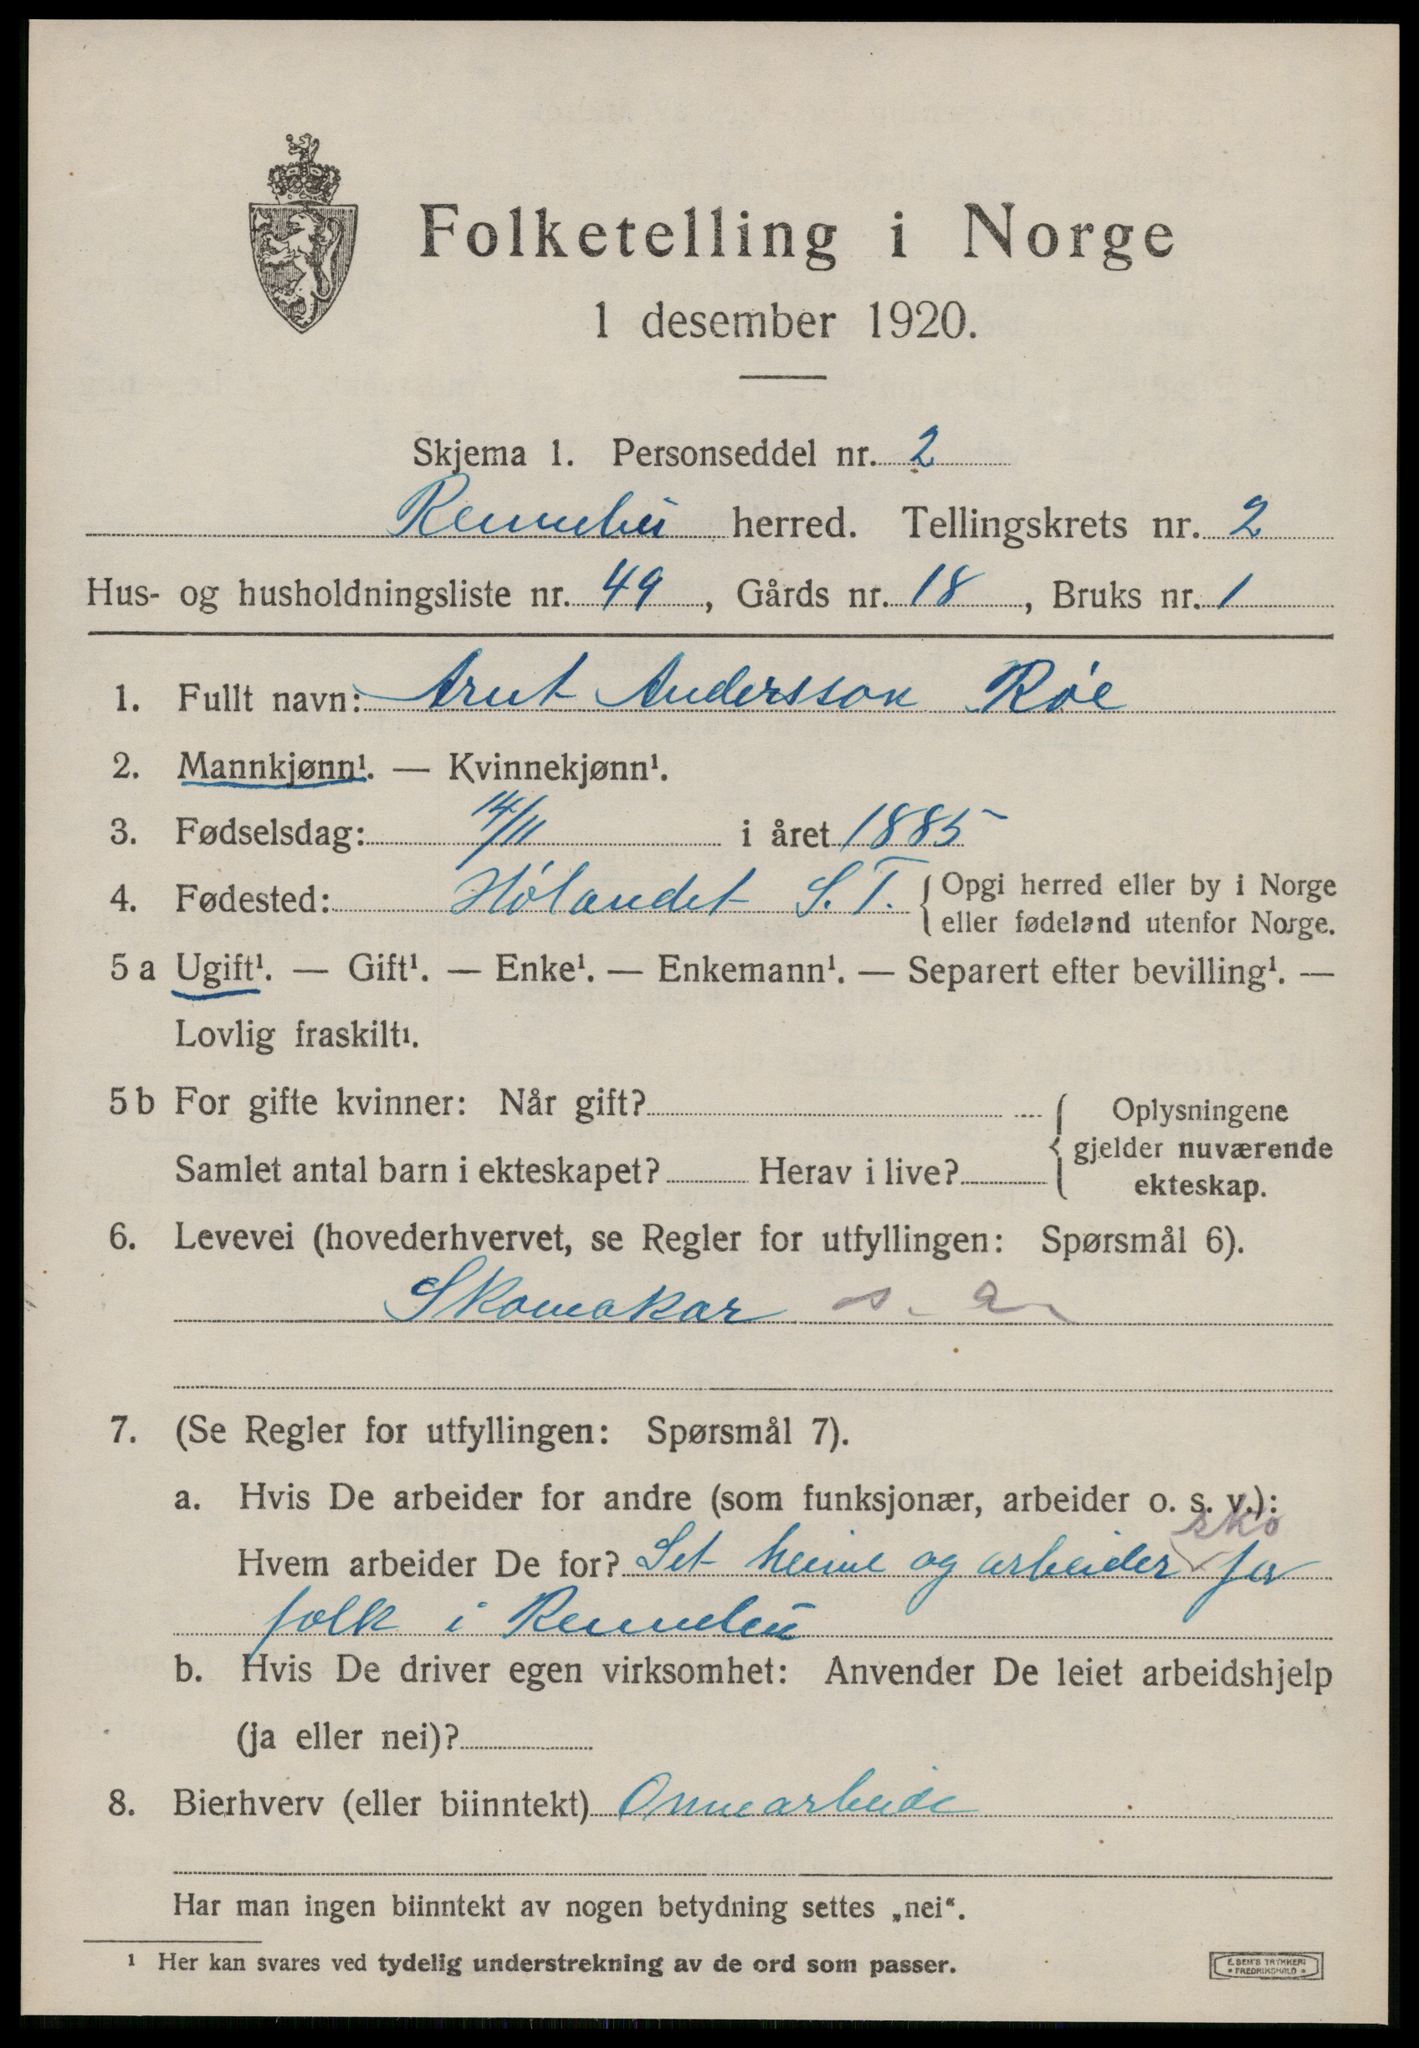 Folketelling i Norge
1 desember 1920.
Skjema 1. Personseddel nr. 2
Rennebu herred. Tellingskrets nr. 2
Hus- og husholdningsliste nr. 49, Gårds nr. 18, Bruks nr. 1
1. Fullt navn: Arnt Andersson Røe
2. Mannkjønn¹. — Kvinnekjønn¹.
3. Fødselsdag: 14/11 i året 1885
4. Fødested: Hølandet S.T. { Opgi herred eller by i Norge
eller fødeland utenfor Norge.
5 a Ugift¹. — Gift¹. — Enke¹. — Enkemann¹. — Separert efter bevilling¹. —
Lovlig fraskilt¹.
5 b For gifte kvinner: Når gift? { Oplysningene
gjelder nuværende
Samlet antal barn i ekteskapet? Herav i live? ekteskap.
6. Levevei (hovederhvervet, se Regler for utfyllingen: Spørsmål 6).
Skomakar s. a.
7. (Se Regler for utfyllingen: Spørsmål 7).
a. Hvis De arbeider for andre (som funksjonær, arbeider o. s. v.):
sko
Hvem arbeider De for? Set heime og arbeider for
folk i Rennebu
b. Hvis De driver egen virksomhet: Anvender De leiet arbeidshjelp
(ja eller nei)?
8. Bierhverv (eller biinntekt) Onnearbeide
Har man ingen biinntekt av nogen betydning settes „nei“.
¹ Her kan svares ved tydelig understrekning av de ord som passer.
E. SEM'S TRYKKERI
* FREDRIKSHALD *